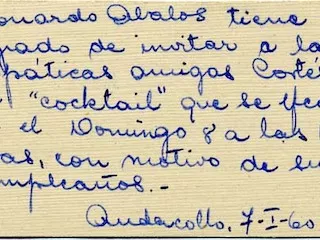 onardo Abalos tiene
grado de invitar a la
páticas amigas Corté
"cocktail" que se
el Domingo 8 a las
as, con motivo de su
umpleaños.-
Andacollo, 7-I-60